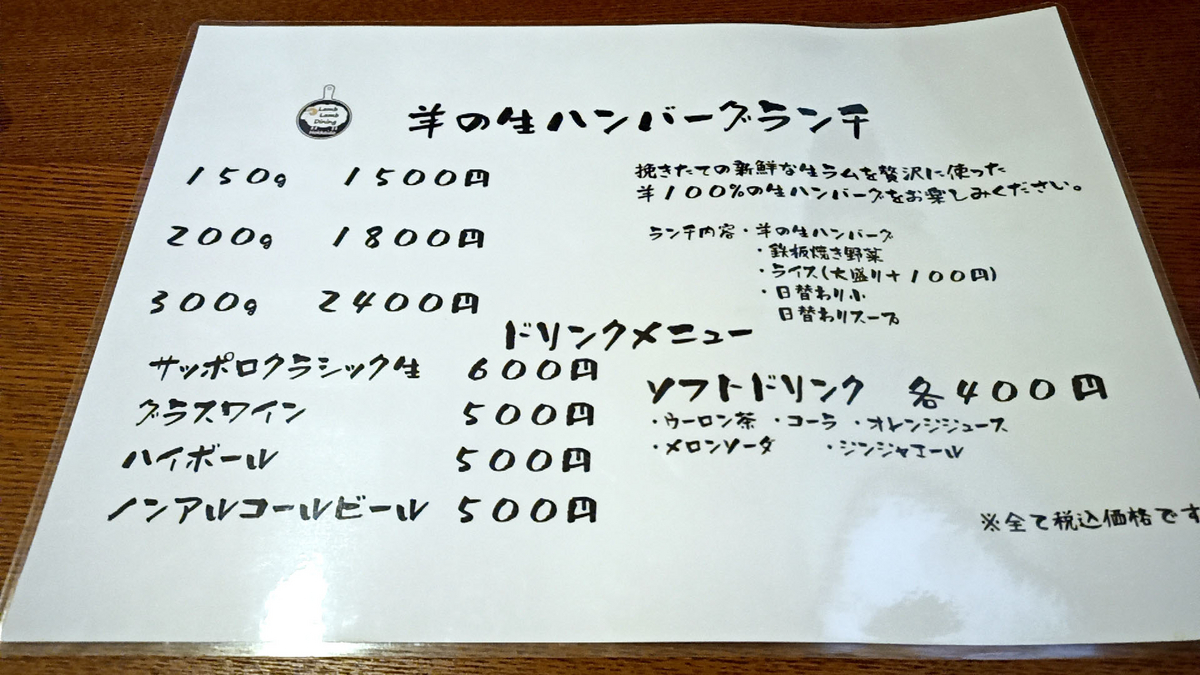 Lamb
Lamb
Dining
羊の生ハンバーグランチ
150g 1500円
200g 1800円
300g 2400円
挽きたての新鮮な生ラムを贅沢に使った
羊100%の生ハンバーグをお楽しみください。
ランチ内容・羊の生ハンバーグ
・鉄板焼き野菜
・ライス(大盛り+100円)
・日替わり小
日替わりスープ
ドリンクメニュー
サッポロクラシック生 600円
グラスワイン 500円
ハイボール 500円
ノンアルコールビール 500円
ソフトドリンク 各400円
・ウーロン茶 ・コーラ ・オレンジジュース
・メロンソーダ ・ジンジャエール
※全て税込価格です